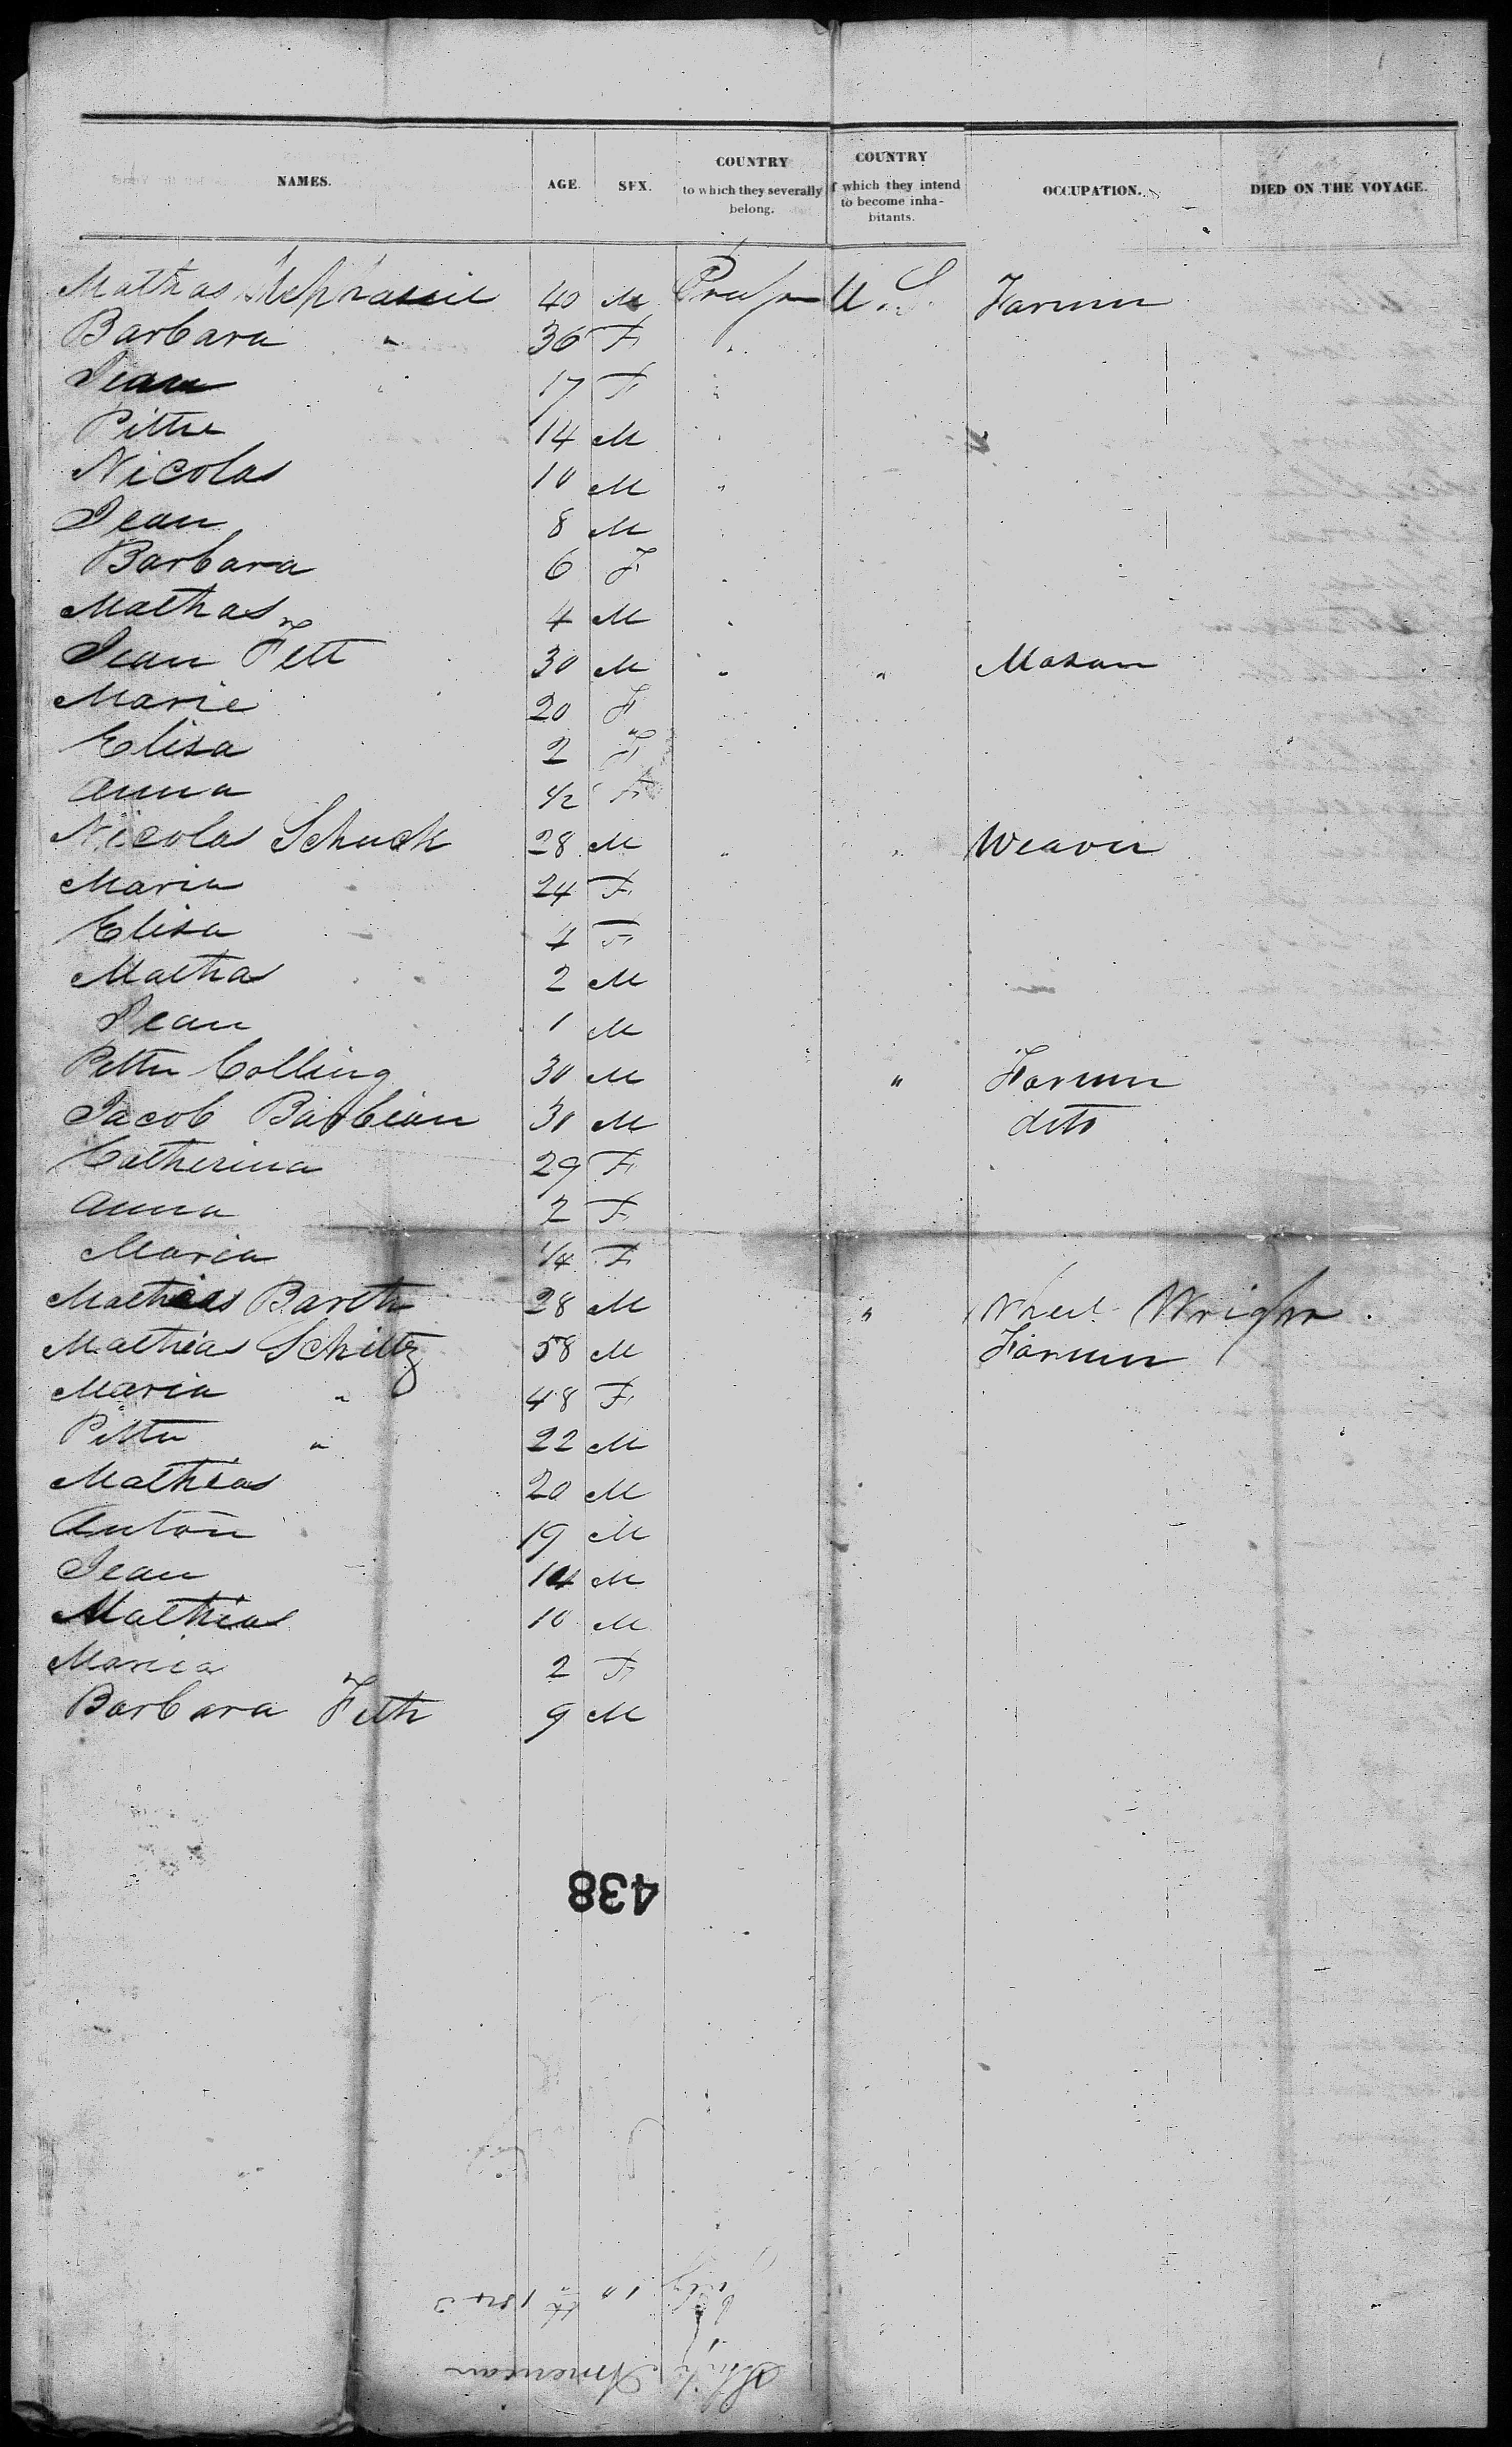 NAMES. AGE. SEX. COUNTRY to which they severally belong. COUNTRY f which they intend to become inha- bitants. OCCUPATION. DIED ON THE VOYAGE.
Mathas 40 M U.S. Farmer
Barbara " 36 F "
Jean 17 F "
Pitter 14 M
Nicolas 10 M "
Jean 8 M
Barbara 6 F
Mathas 4 M
Jean Fett 30 M " " Mason
Marie 20 F
Elisa 2 F
Anna 1/2 F
Nicolas Schuck 28 M " " Weaver
Maria 24 F
Elisa 4 F
Mathas 2 M
Jean 1 M
Pitter Colling 30 M " Farmer
Jacob Barbian 30 M dito
Catherina 29 F
Anna 2 F
Maria 1/4 F
Mathias Barth 28 M " Wheel Wright.
Mathias Schiltz 58 M Farmer
Maria " 48 F
Pitter " 22 M
Mathias 20 M
Anton 19 M
Jean 14 M
Mathias 10 M
Maria 2 F
Barbara Feth 9 M
438
July 10th 1843
Ship American